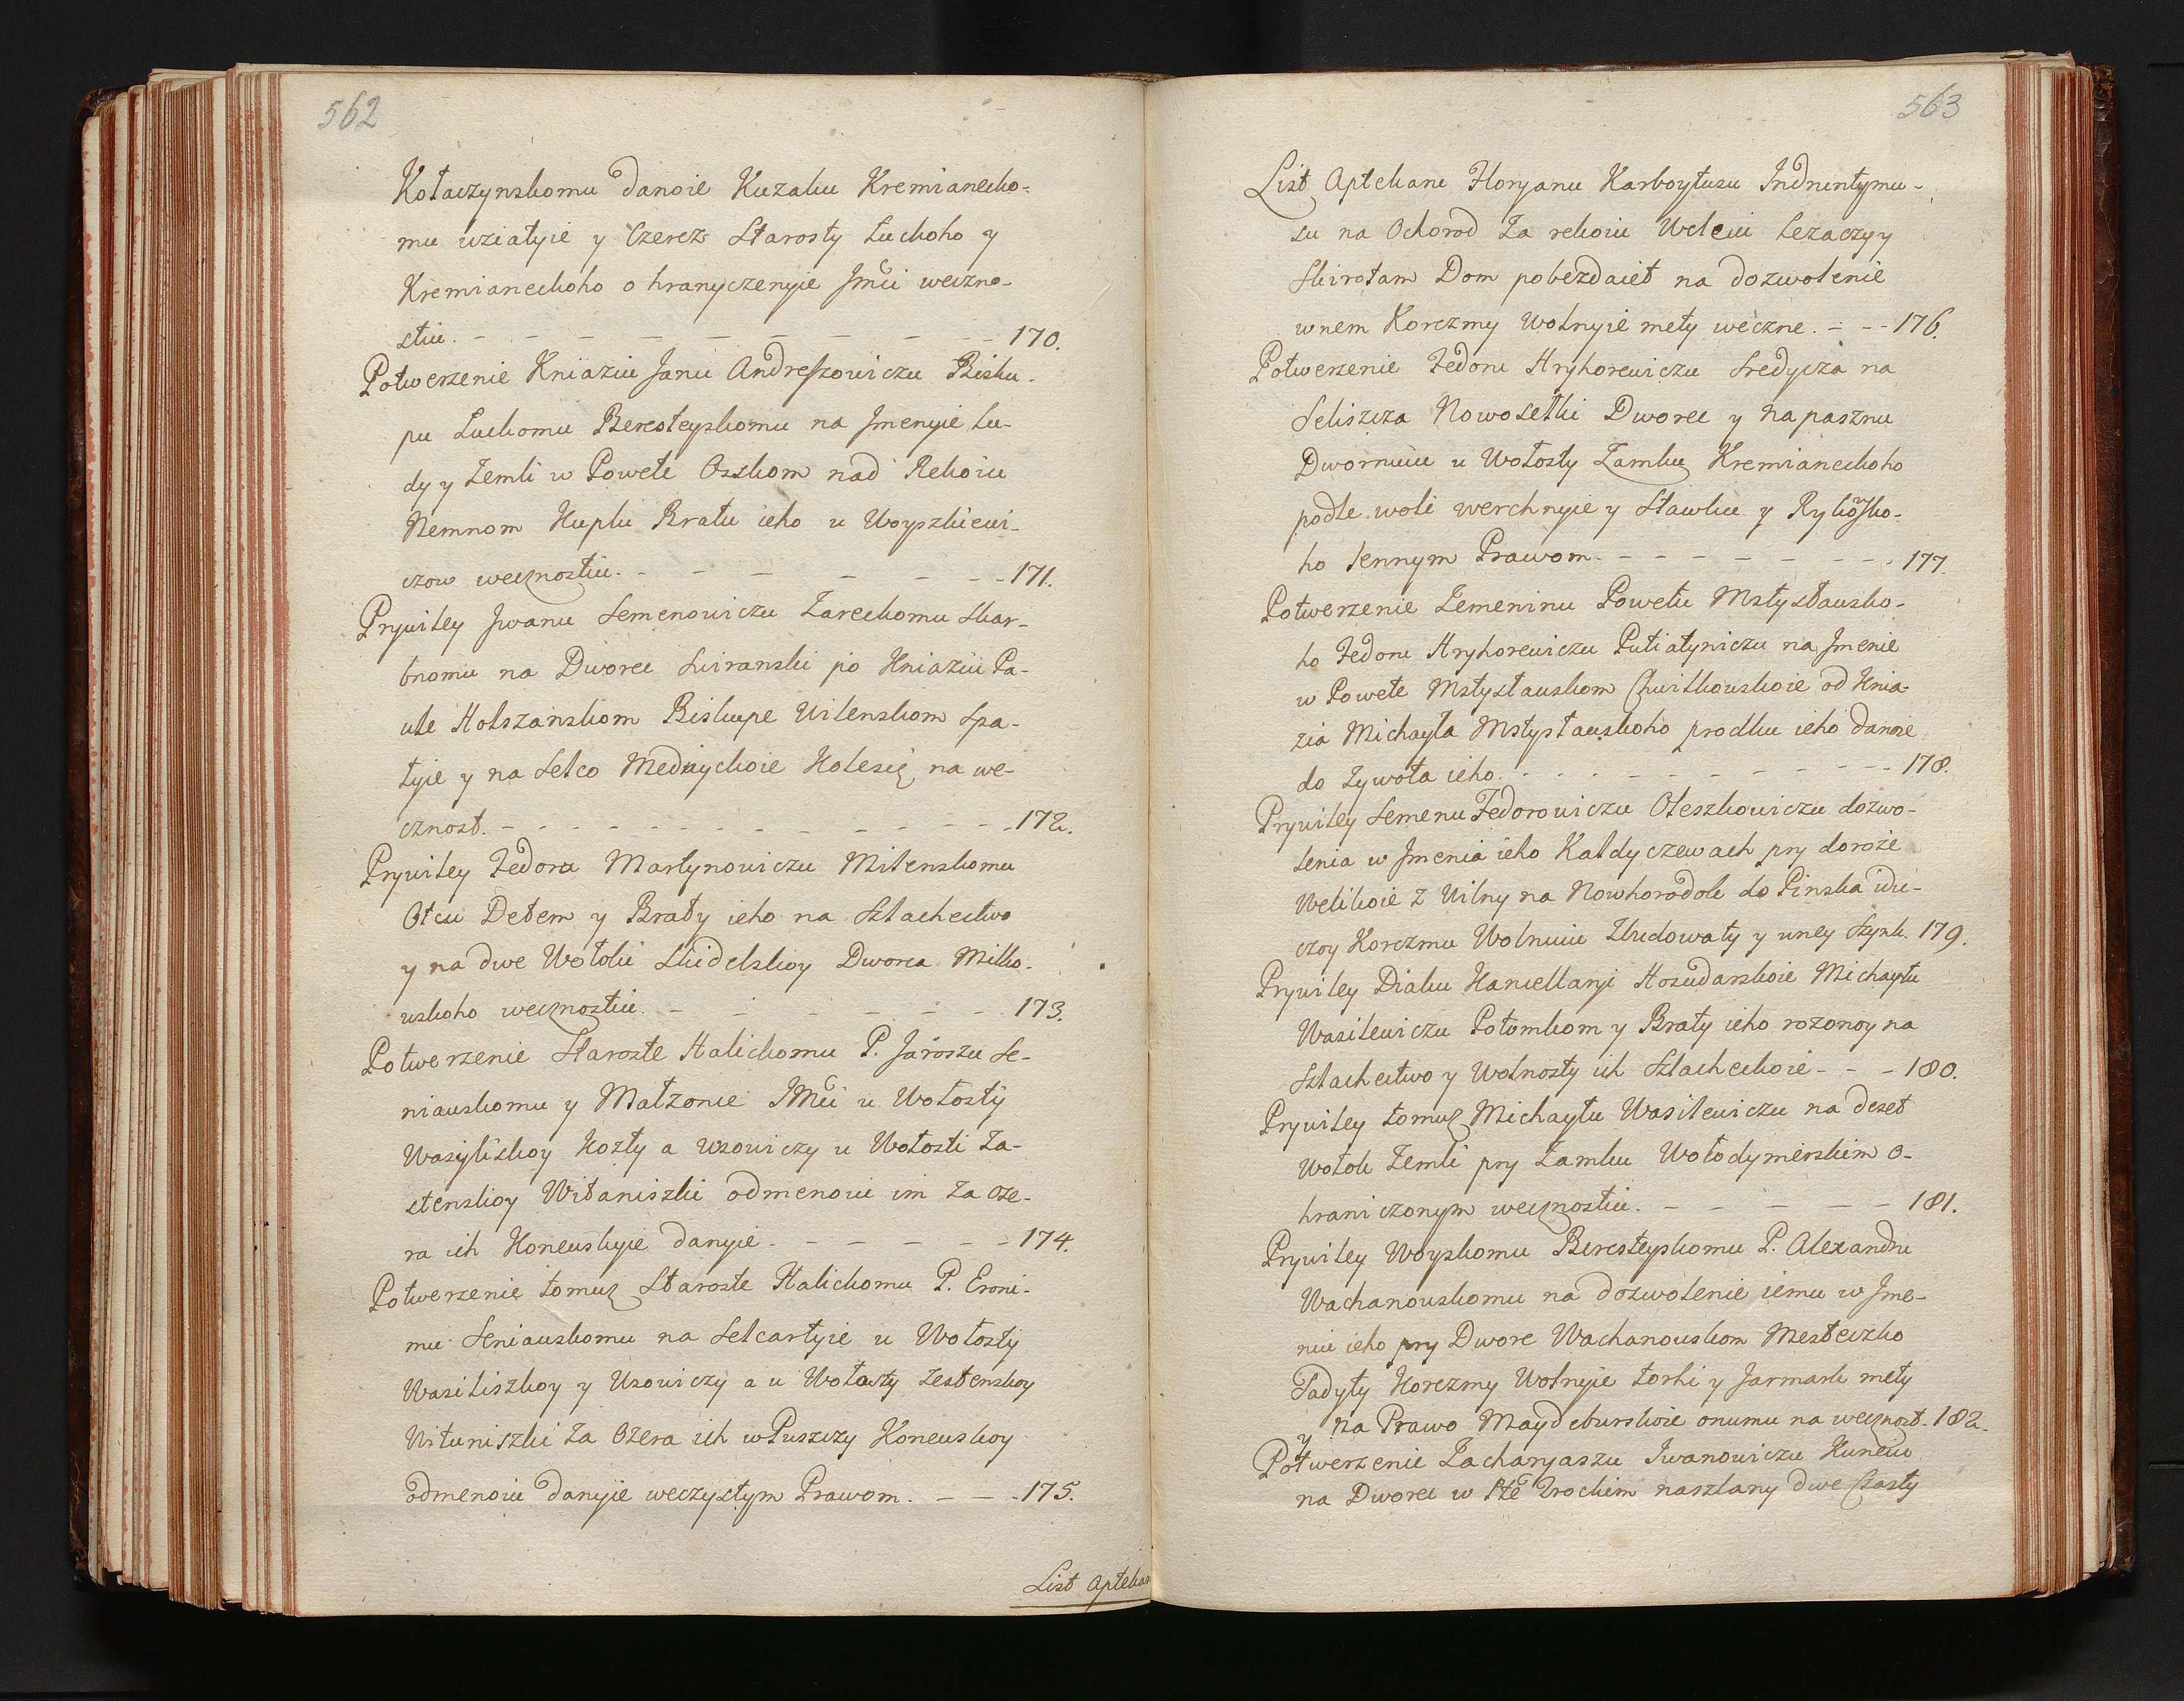 562
Kołaczynskomu danoie Kuzaku Kremianecko-
mu wziatyie y Czerez Starosty Łuckoho y
Kremianeckoho o hranyczenyie Jmci weczno-
stiu. - - - - - - - - 170.
Potwerzenie Kniaziu Janu Andreszowiczu Bisku-
pu Łuckomu Beresteyskomu na Jmenyie Lu-
dy y Zemli w Powete Osskom nad Rekoiu
Nemnom Kuplu Bratu ieho u Woyszkiewi-
czow wecznostiu. - - - - - - 171.
Prywiley Jwanu Semenowiczu Zareckomu Skar-
bnomu na Dworec Swiranski po Kniaziu Pa-
wle Holszanskom Biskupe Wilenskom Spa-
łyie y na Selco Mednyckoie Kolesię na we-
cznost. - - - - - - - - - - - 172.
Prywiley Fedora Martynowiczu Milenskomu
Otcu Detem y Braty ieho na Szlachectwo
y na dwe Wołoki Skidelskoy Dworca Milko-
wskoho wecznostiu. - - - - - - - 173.
Potwerzenie Staroste Halickomu P. Jaroszu Se-
niauskomu y Małzonce JMci u Wołosty
Wasyliskoy Kozły a Usowiczy u Wołosti Za-
stenskoy Witaniszki odmenoiu im Za oze-
ra ich Koneuskyie danyie - - - - - 174.
Potwerzenie tomuz Staroste Halickomu P. Eroni-
mu Seniauskomu na Selcartyie u Wołosty
Wasiliszkoy y Usowiczy a u Wołosty Zestenskoy
Wituniszki Za Ozera ich w Puszczy Koneuskoy
odmenoiu danyie weczystym Prawom. - - - 175.
List Aptekan
563
List Aptekanu Floryanu Karboytusu Indnuntymu-
su na Ochorod Za rekoiu Weleiu lezaczy y
Skirotam Dom pobezdaiet na dozwolenie
wnem Korczmy Wolnyie mety weczne. - - - 176.
Potwerzenie Fedoru Hryhorewiczu Sredycza na
Seliszcza Nowosełki Dworec y na pasznu
Dwornuiu u Wołosty Zamku Kremianeckoho
podle woli werchnyie y Stawku y Rybowsko-
ho lennym Prawom. - - - - - - - 177.
Potwerzenie Zemeninu Powetu Mstysławsko-
ho Fedoru Hryhorewiczu Putiatyniczu na Jmenie
w Powete Mstysławskom Chwitkowskoie od Knia-
zia Michayła Mstysławskoho prodku ieho danoie
do Zywota ieho. - - - - - - - - - 178.
Prywiley Semenu Fedorowiczu Oleszkowiczu dozwo-
lenia w Jmenia ieho Kałdyczewach pry doroże
Welikoie z Wilny na Nowhorodok do Pinska idu-
czoy Korczmu Wolnuiu Zbudowaty y uney Szynk. 179.
Prywiley Diaku Kancellaryi Hosudarskoie Michayłu
Wasilewiczu Potomkom y Braty ieho rozonoy na
Szlachectwo y Wolnosty ich Szlacheckoie - - - 180.
Prywiley tomuz Michayłu Wasilewiczu na deset
Wołok Zemli pry Zamku Wołodymerskim o-
hraniczonym wecznostiu. - - - - - 181.
Prywiley Woyskomu Beresteyskomu P. Alexandru
Wachanouskomu na dozwolenie iemu w Jme-
niu ieho pry Dwore Wachanouskom Mesteczko
Sadyty Korczmy Wolnyie torhi y Jarmark mety
y na Prawo Maydeburskoie onumu na wecznost. 182.
Potwerzenie Zacharyaszu Iwanowiczu Kuncu
na Dworec w Pte Trockim naszlany dwe Czasty